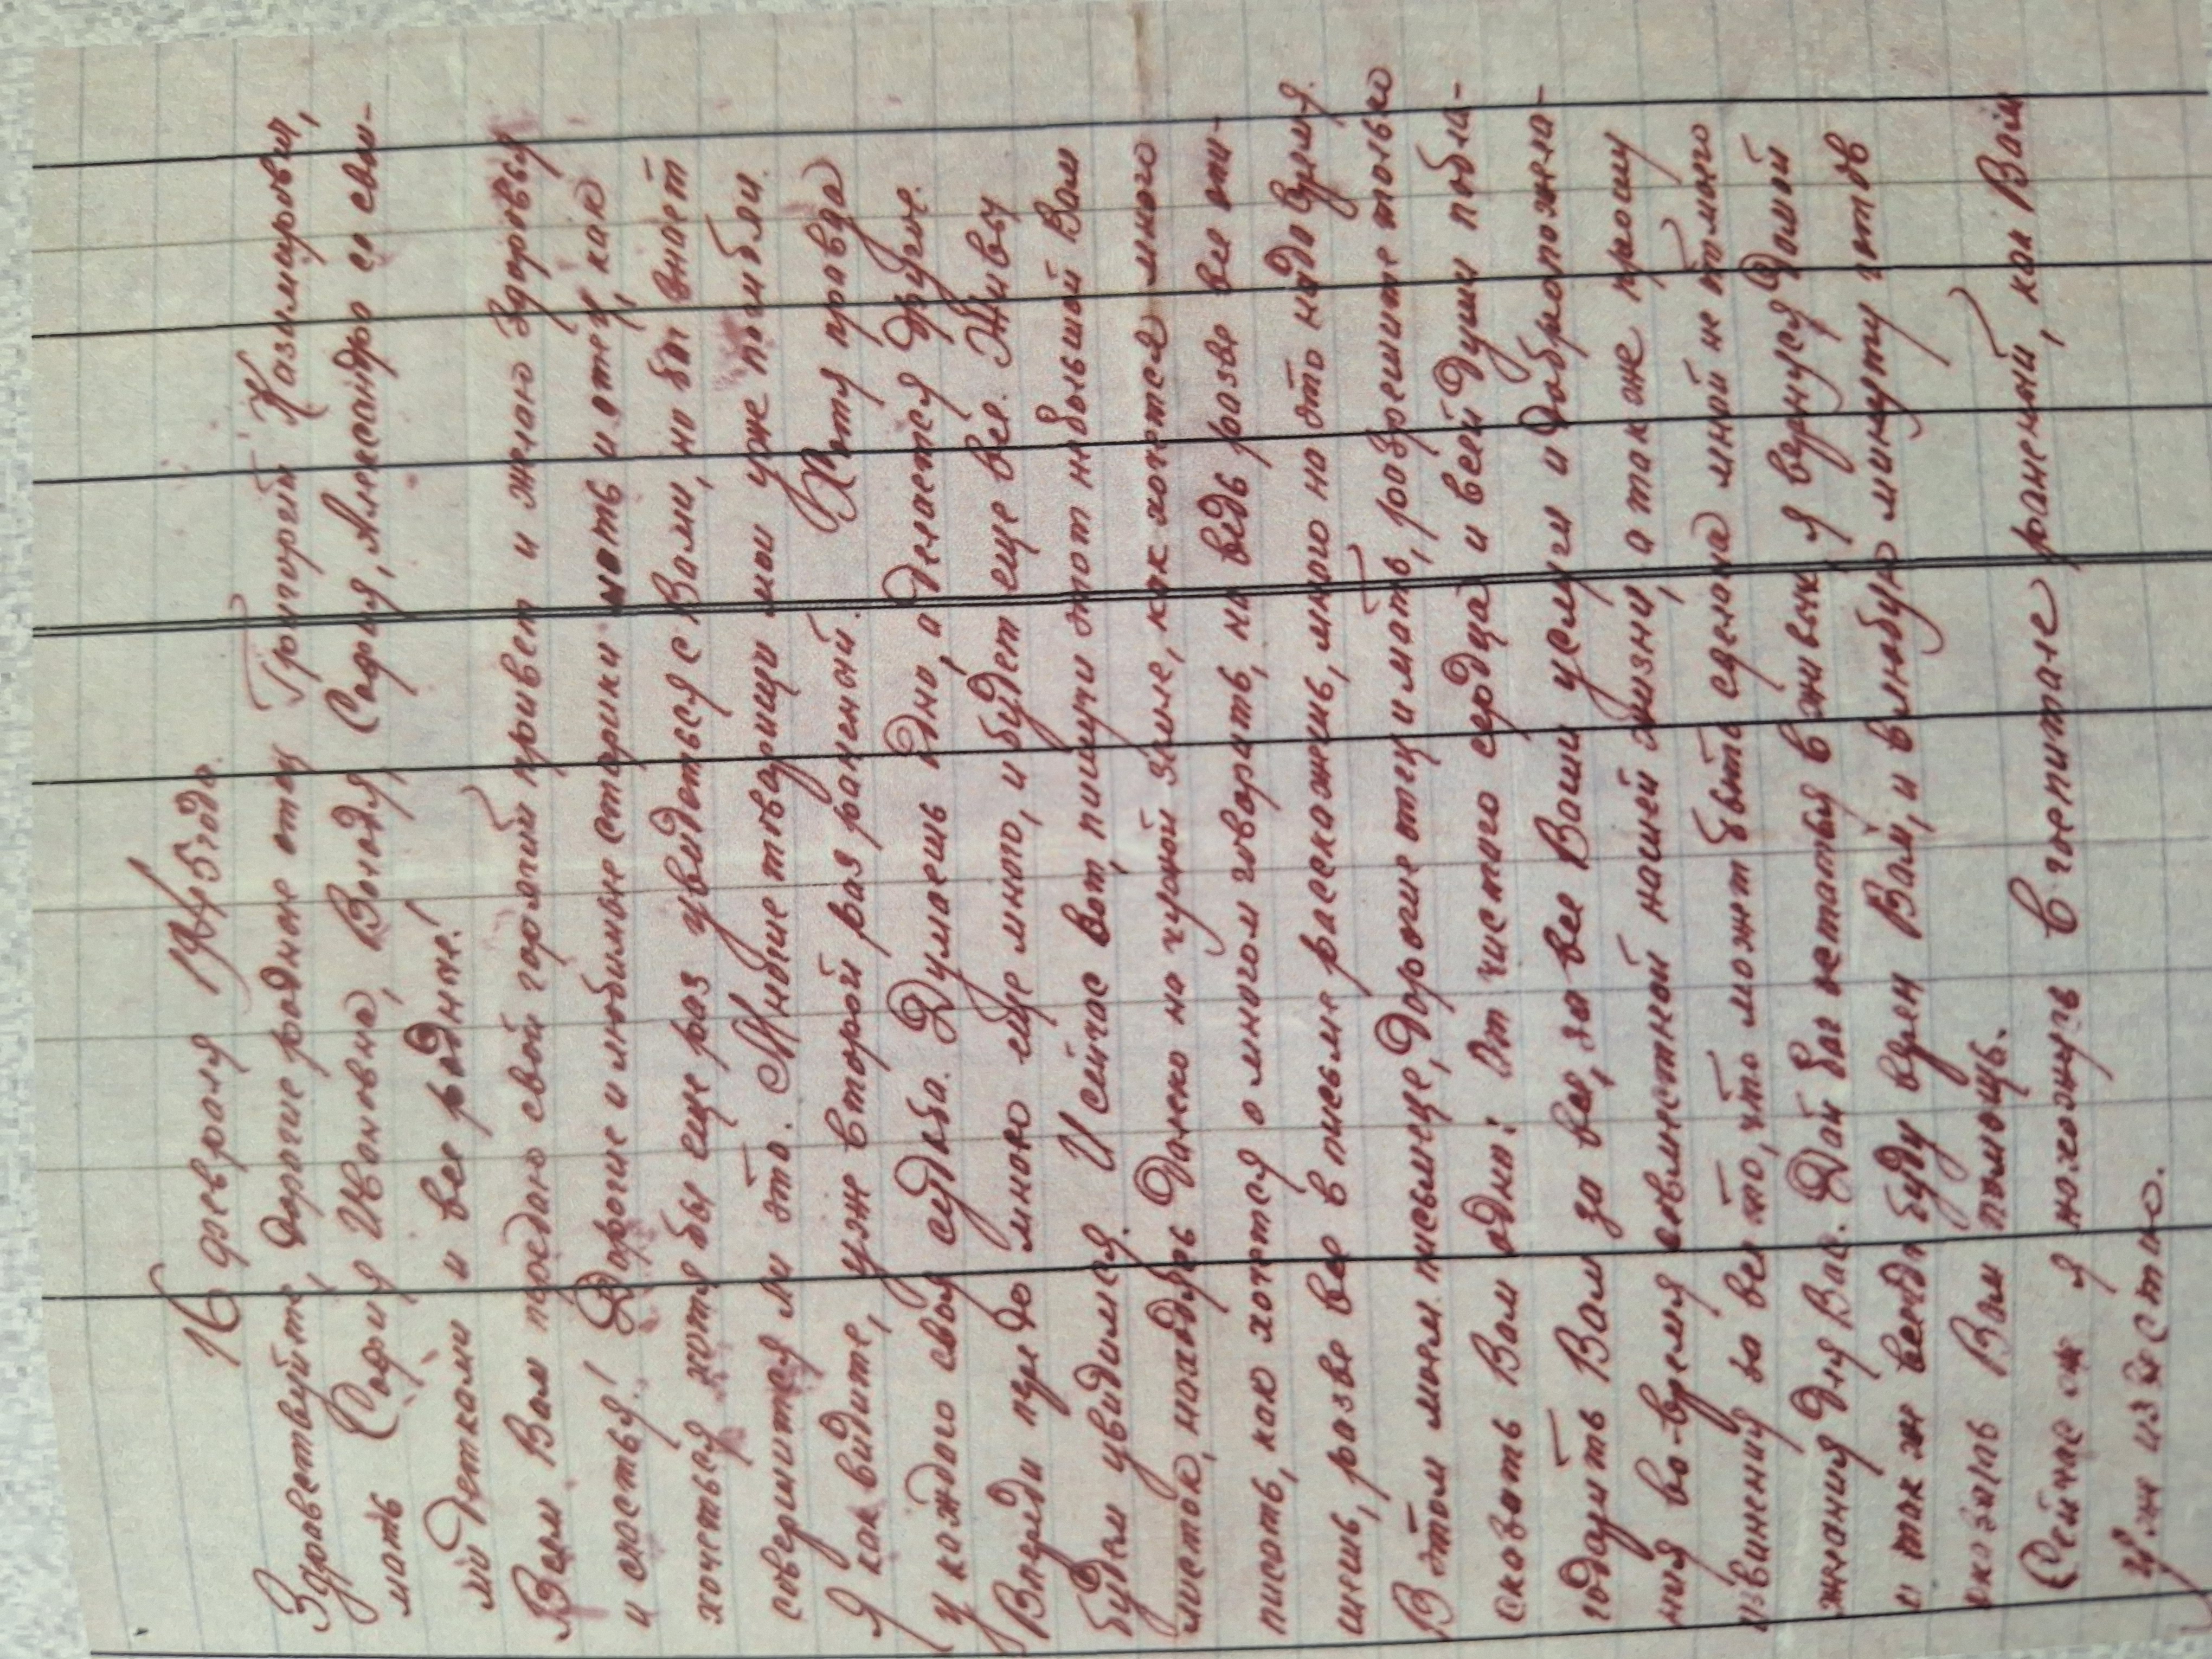 16 февраля 1945 года.
Здравствуйте, дорогие родные отец Григорий Казимирович,
мать София Ивановна, Ванада, София, Александра со свои-
ми детками и все родные!
Всем Вам посылаю свой горячий привет и желаю здоровья
и счастья! Дорогие и любимые старики мать и отец, как
хочеться хотя бы еще раз увидеться с Вами, но бог знает
совершится ли это. Многие товарищи мои уже погибли.
Я как видите, уже второй раз раненый. Хотя правда
у каждого своя судьба. Думаешь одно, а делается другое.
Впереди передо мною еще много, и будет еще все. Живы
будем увидимся. И сейчас вот, пишучи этот небольшой Вам
листок, находясь далеко на чужой земле, как хочется много
писать, как хочется о многом говорить, но ведь разве все опи-
шешь, разве все в письме расскажешь, много на это надо время.
В этом моем письмеце, дорогие отец и мать, разрешите только
сказать Вам одно: От чистого сердца и всей души побла-
годарить Вам за все, за все Ваши услуги и доброжела-
ния во-время совместной нашей жизни, а так же прошу
извинения за все то, что может быть сделано мной не томого
желания для Вас. Дай бог остаться в живых я вернуся домой
и так же всегда буду всем Вам, и в любую минуту готов
оказать Вам помощь.
Сейчас я нахожусь в госпитале раненый, как Вам
уже известно.